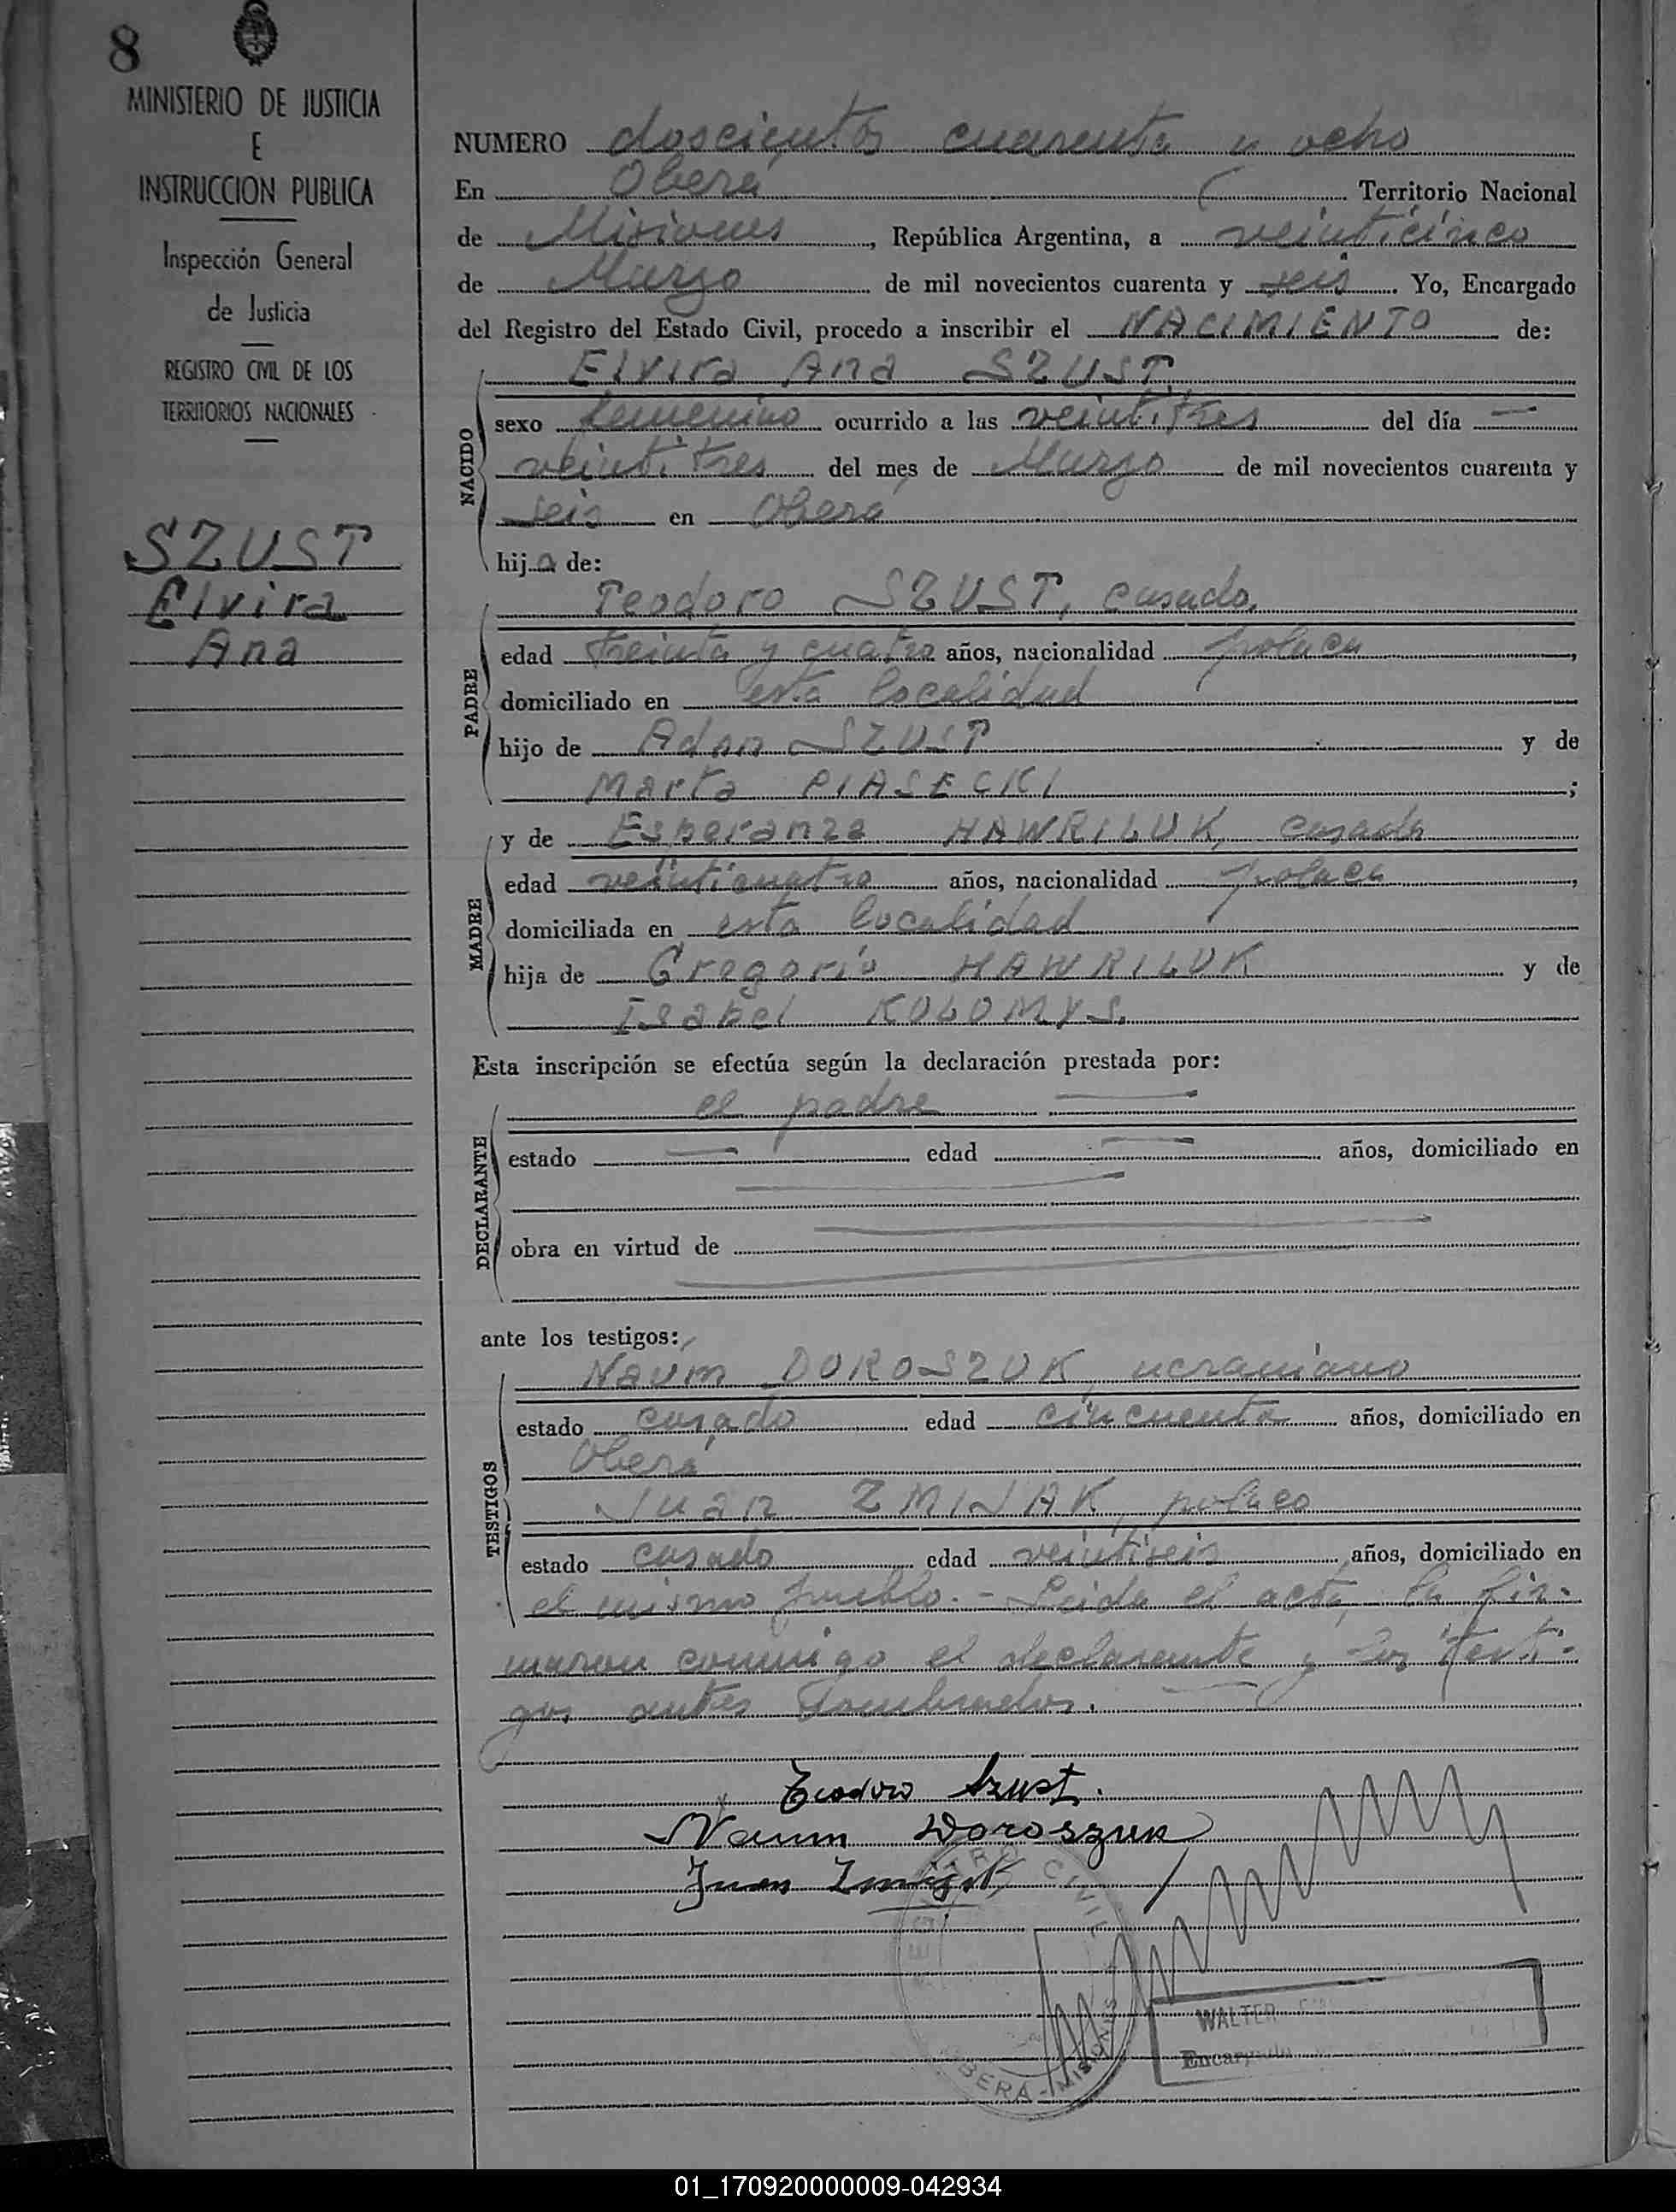 8
MINISTERIO DE JUSTICIA
E
INSTRUCCION PUBLICA
Inspección General
de Justicia
REGISTRO CIVIL DE LOS
TERRITORIOS NACIONALES
SZUST
Elvira
Ana
NUMERO doscientos cuarenta y ocho
En Oberá Territorio Nacional
de Misiones, República Argentina, a veinticinco
de Marzo de mil novecientos cuarenta y seis. Yo, Encargado
del Registro del Estado Civil, procedo a inscribir el NACIMIENTO de:
Elvira Ana SZUST
NACIDO
sexo femenino ocurrido a las veintitres del día —
veintitres del mes de Marzo de mil novecientos cuarenta y
seis en Oberá
hija de:
PADRE
Teodoro SZUST, casado,
edad treinta y cuatro años, nacionalidad polaca,
domiciliado en esta localidad
hijo de Adan SZUST y de
Marta PIASECKI;
MADRE
y de Esperanza HAWRILUK, casada
edad veinticuatro años, nacionalidad polaca,
domiciliada en esta localidad
hija de Gregorio HAWRILUK y de
Isabel KOLOMYS.
Esta inscripción se efectúa según la declaración prestada por:
DECLARANTE
el padre —
estado — edad — años, domiciliado en
obra en virtud de
ante los testigos:
TESTIGOS
Naum DOROSZUK, ucraniano
estado casado edad cincuenta años, domiciliado en
Oberá
Juan ZMIJAK, polaco
estado casado edad veintiseis años, domiciliado en
el mismo pueblo.- Leida el acta, la fir-
maron conmigo el declarante y los testi-
gos antes nombrados.
Teodoro Szust.
Naum Doroszuk
Juan Zmijak
REGISTRO CIVIL
OBERÁ - MISIONES
WALTER
Encargado
01_170920000009-042934